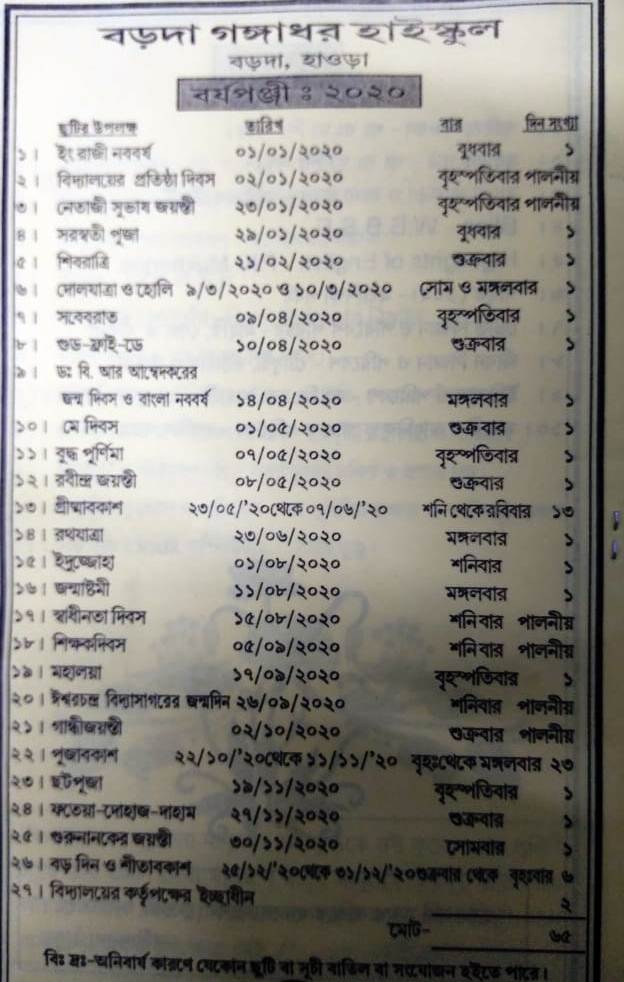 বড়দা গঙ্গাধর হাইস্কুল
বড়দা, হাওড়া
বর্ষপঞ্জী ঃ ২০২০
ছুটির উপলক্ষ তারিখ বার দিন সংখ্যা
১। ইংরাজী নববর্ষ ০১/০১/২০২০ বুধবার ১
২। বিদ্যালয়ের প্রতিষ্ঠা দিবস ০২/০১/২০২০ বৃহস্পতিবার পালনীয়
৩। নেতাজী সুভাষ জয়ন্তী ২৩/০১/২০২০ বৃহস্পতিবার পালনীয়
৪। সরস্বতী পূজা ২৯/০১/২০২০ বুধবার ১
৫। শিবরাত্রি ২১/০২/২০২০ শুক্রবার ১
৬। দোলযাত্রা ও হোলি ৯/৩/২০২০ ও ১০/৩/২০২০ সোম ও মঙ্গলবার ১
৭। সবেবরাত ০৯/০৪/২০২০ বৃহস্পতিবার ১
৮। গুড-ফ্রাই-ডে ১০/০৪/২০২০ শুক্রবার ১
৯। ডঃ বি. আর আম্বেদকরের
জন্ম দিবস ও বাংলা নববর্ষ ১৪/০৪/২০২০ মঙ্গলবার ১
১০। মে দিবস ০১/০৫/২০২০ শুক্রবার ১
১১। বুদ্ধ পূর্ণিমা ০৭/০৫/২০২০ বৃহস্পতিবার ১
১২। রবীন্দ্র জয়ন্তী ০৮/০৫/২০২০ শুক্রবার ১
১৩। গ্রীষ্মাবকাশ ২৩/০৫/'২০থেকে ০৭/০৬/'২০ শনি থেকে রবিবার ১৩
১৪। রথযাত্রা ২৩/০৬/২০২০ মঙ্গলবার ১
১৫। ইদুজ্জোহা ০১/০৮/২০২০ শনিবার ১
১৬। জন্মাষ্টমী ১১/০৮/২০২০ মঙ্গলবার ১
১৭। স্বাধীনতা দিবস ১৫/০৮/২০২০ শনিবার পালনীয়
১৮। শিক্ষকদিবস ০৫/০৯/২০২০ শনিবার পালনীয়
১৯। মহালয়া ১৭/০৯/২০২০ বৃহস্পতিবার ১
২০। ঈশ্বরচন্দ্র বিদ্যাসাগরের জন্মদিন ২৬/০৯/২০২০ শনিবার পালনীয়
২১। গান্ধীজয়ন্তী ০২/১০/২০২০ শুক্রবার পালনীয়
২২। পূজাবকাশ ২২/১০/'২০থেকে ১১/১১/'২০ বৃহঃথেকে মঙ্গলবার ২৩
২৩। ছটপূজা ১৯/১১/২০২০ বৃহস্পতিবার ১
২৪। ফতেয়া-দোহাজ-দাহাম ২৭/১১/২০২০ শুক্রবার ১
২৫। গুরুনানকের জয়ন্তী ৩০/১১/২০২০ সোমবার ১
২৬। বড় দিন ও শীতাবকাশ ২৫/১২/'২০থেকে ৩১/১২/'২০শুক্রবার থেকে বৃহঃবার ৬
২৭। বিদ্যালয়ের কর্তৃপক্ষের ইচ্ছাধীন ২
মোট- ৬৫
বিঃ দ্রঃ-অনিবার্য কারণে যেকোন ছুটি বা সূচী বাতিল বা সংযোজন হইতে পারে।